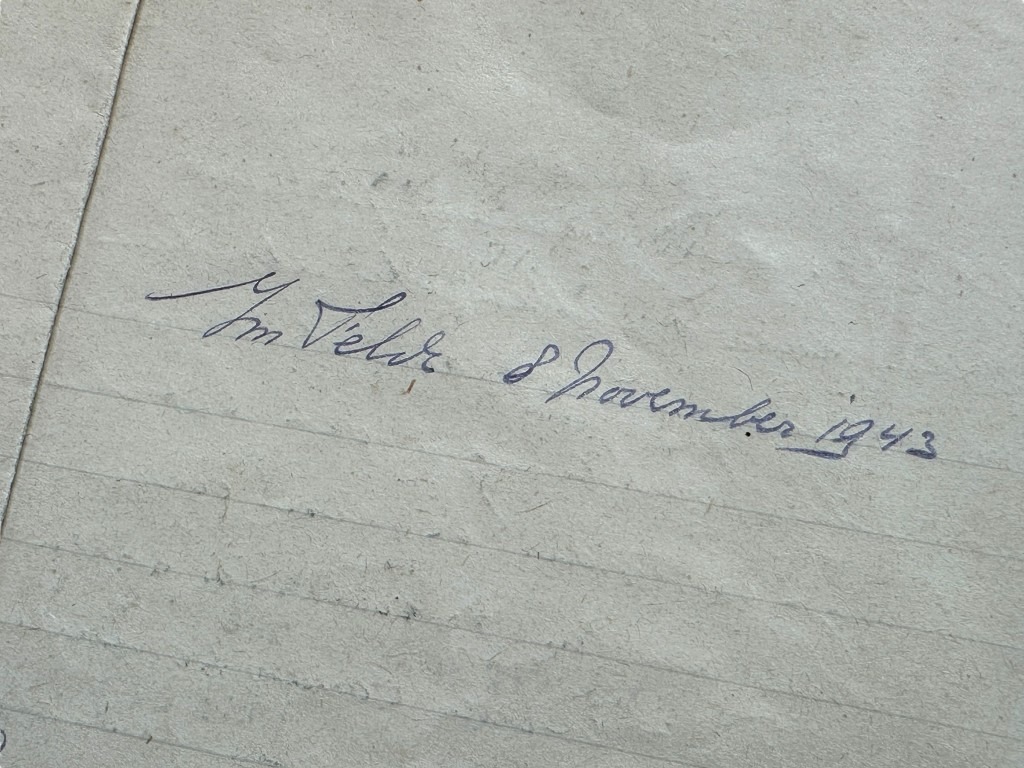 Im Felde 8 November 1943